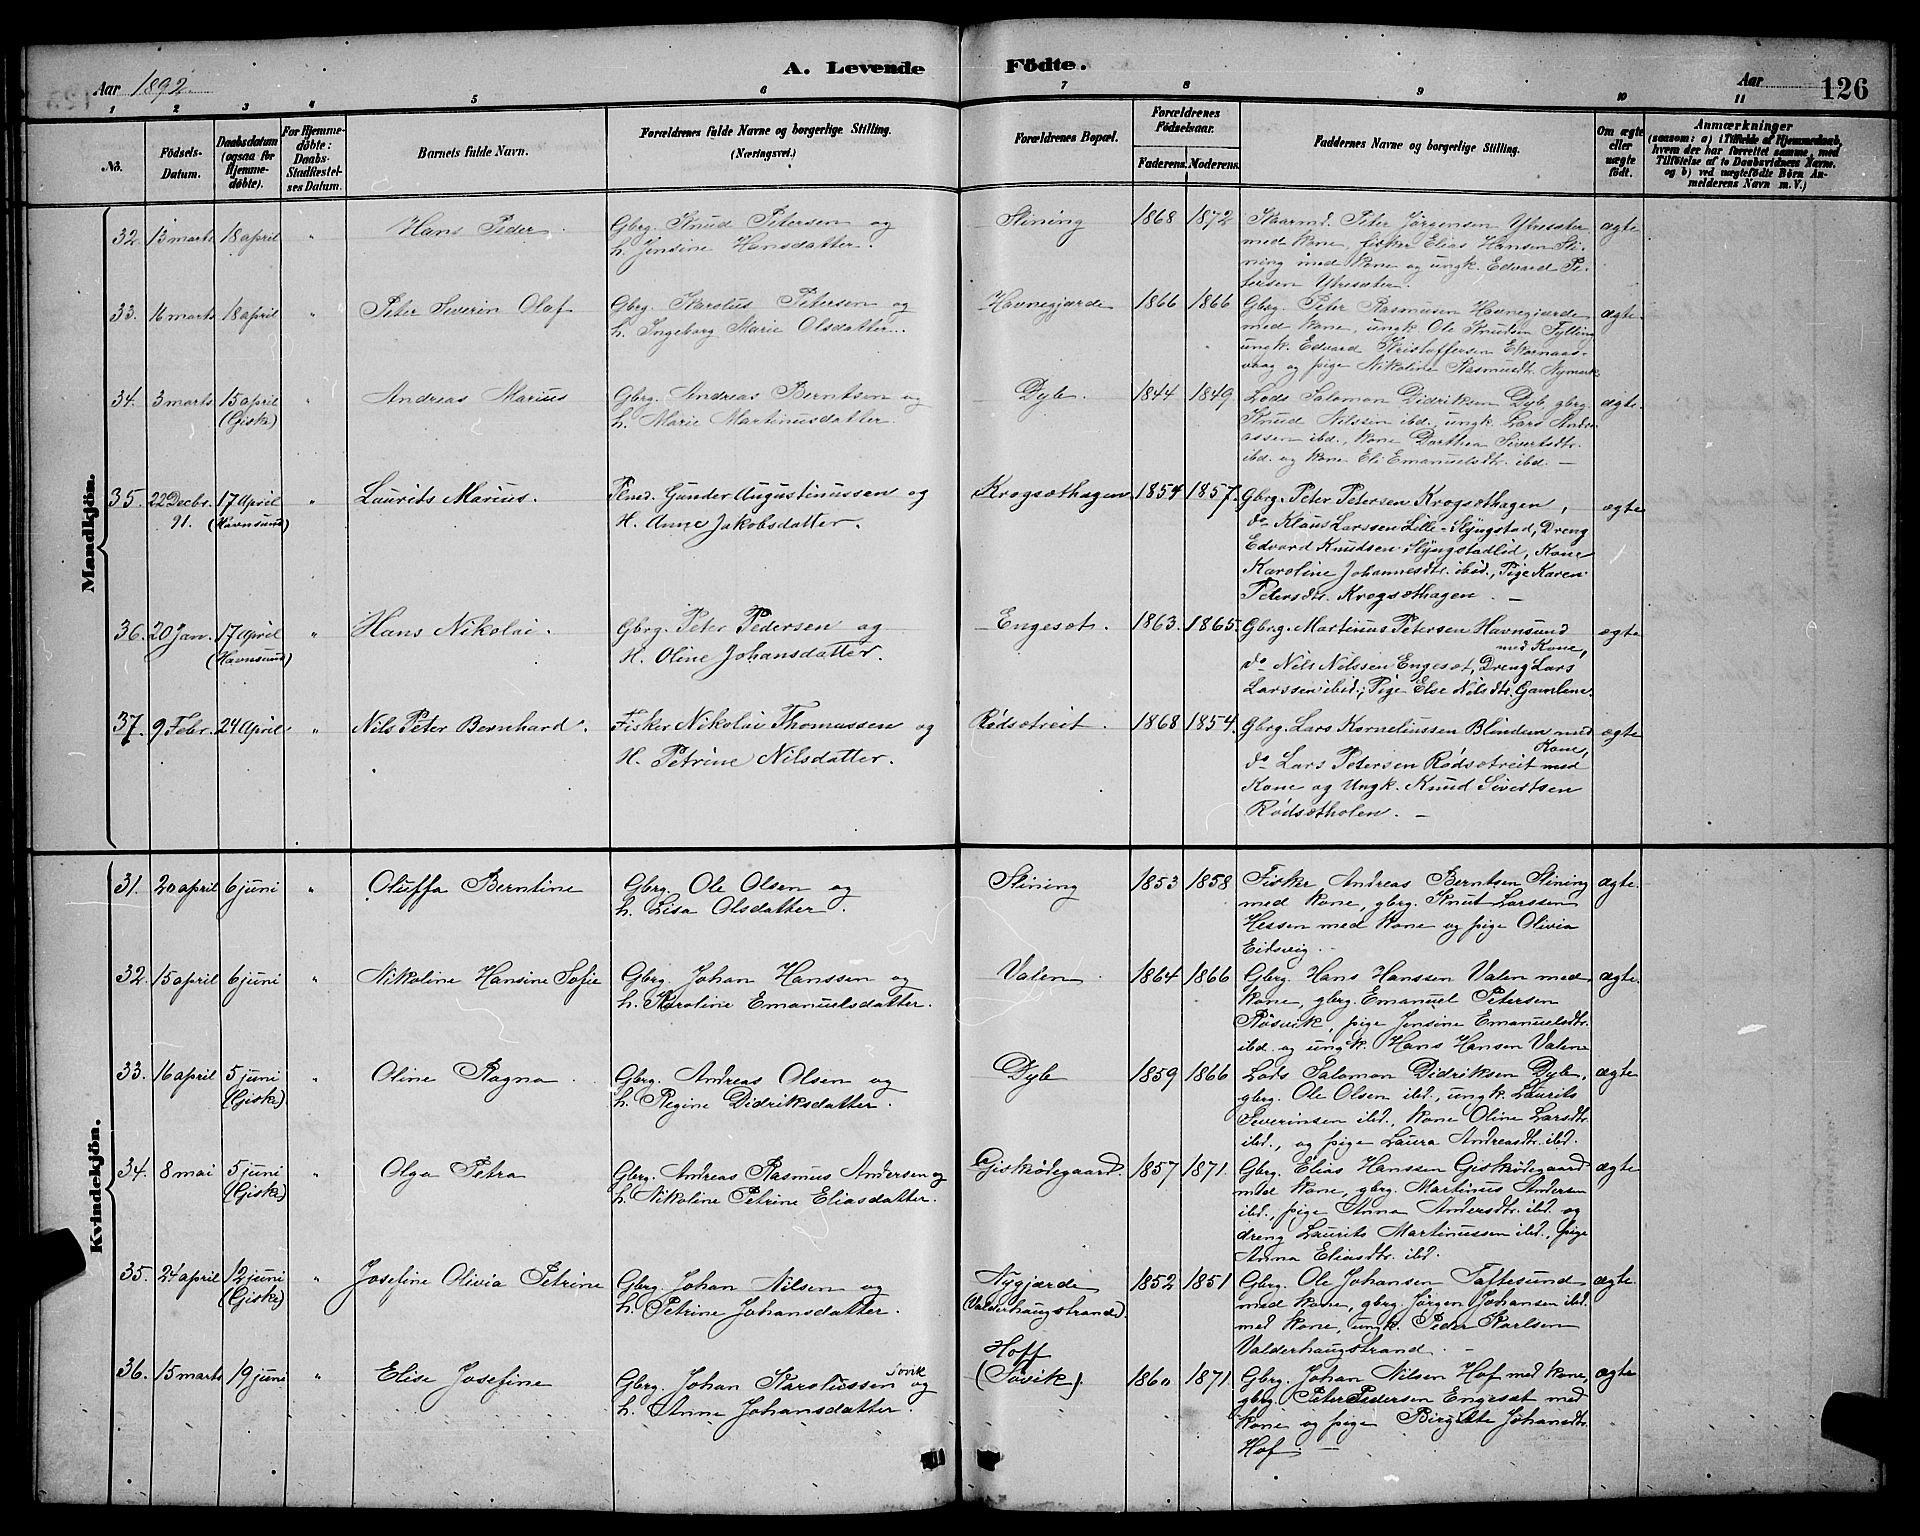 Aar 1892 A. Levende Födte. Aar 126
1 2 3 4 5 6 7 8 9 10 11
No. Fødsels-Datum. Daabsdatum (ogsaa for Hjemmedøbte). For Hjemmedøbte: Daabs-Stadfæstelses Datum. Barnets fulde Navn. Forældrenes fulde Navne og borgerlige Stilling. (Næringsvei.) Forældrenes Bopæl. Forældrenes Födselsaar. Faderens. Moderens. Faddernes Navne og borgerlige Stilling. Om ægte eller uægte födt. Anmærkninger (saasom: a) i Tilfælde af Hjemmedaab, hvem der har forrettet samme, med Tilföielse af to Daabsvidners Navne, og b) ved uægtefödte Börn Anmelderens Navn m. V.)
Mandkjön.
32. 13 marts 18 april " Hans Peder. Gbrg. Knud Petersen og Stining 1868 1872 Skarmd. Peter Jørgensen Ytresæter ægte
h. Jensine Hansdatter. med kone, fisker Elias Hansen Sti-
ning med kone og ungk. Edvard Pe-
tersen Ytresæter.
33. 16 marts 18 april " Peter Severin Olaf Gbrg. Karolus Petersen og Havnegjærde 1866 1866 Gbrg. Peter Rasmusen Havnegjærde ægte
h. Ingeborg Marie Olsdatter. med kone, ungk. Ole Knudsen Tylling
ungk. Edvard Kristoffersen Ekornaas-
vaag og pige Nikoline Rasmusdtr. Nymark
34. 3 marts 15 april " Andreas Marius Gbrg. Andreas Berntsen og Dyb. 1844 1849 Lods Salomon Didriksen Dyb, gbrg. ægte
(Giske) h. Marie Martinusdatter. Knud Nilssen ibd., ungk. Lars Andre-
assen ibd., kone Dorthea Sivertsdtr.
ibd. og kone Eli Emanuelsdtr. ibd. —
35. 22 Decbr. 17 April " Laurits Marius. Gunder Augustinussen og Krogsæthagen 1854 1857. Gbrg. Peter Petersen Krogsæthagen, ægte
91. (Havnsund) H. Anne Jakobsdatter. do Klaus Larssen Lille-Slyngstad, Dreng
Edvard Knudsen Slyngstadlid, Kone
Karoline Johannesdtr. ibid., Pige Karen
Petersdtr. Krogsæthagen. —
36. 20 Jan. 17 April " Hans Nikolai. Gbrg. Peter Pedersen og Engesæt. 1863. 1865. Gbrg. Martinus Petersen Havnsund ægte
(Havnsund) H. Oline Johansdatter. med Kone,
do Nils Nilssen Engesæt, Dreng Lars
Larssen ibid., Pige Else Nilsdtr. Gamlem.
37. 9 Febr. 24 April " Nils Peter Bernhard. Fisker Nikolai Thomassen og Rødsætreit. 1868 1854. Gbrg. Lars Korneliussen Blindem med ægte
H. Petrine Nilsdatter. Kone,
do Lars Petersen Rødsætreit med
Kone og Ungk. Knud Sivertsen
Rødsætholen. —
Kvindekjön.
31. 20 april 6 juni " Oluffa Berntine Gbrg. Ole Olsen og Stining 1853 1858 Fisker Andreas Berntsen Stining ægte.
h. Lisa Olsdatter. med kone, gbrg. Knut Larssen
Hessen med kone og pige Olivia
Eidsvig.
32. 15 april 6 juni " Nikoline Hansine Sofie Gbrg. Johan Hanssen og Valen 1864 1866 Gbrg. Hans Hanssen Valen med ægte.
h. Karoline Emanuelsdatter. kone, gbrg. Emanuel Petersen
Røsvik, pige Jensine Emanuelsdtr.
ibd. og ungk. Hans Hansen Valen
33. 16 april 5 juni " Oline Ragna. Gbrg. Andreas Olsen og Dyb 1859 1866 Lods Salomon Didriksen Dyb, ægte
(Giske). h. Regine Didriksdatter. gbrg. Ole Olsen ibd., ungk. Laurits
Severinsen ibd., kone Oline Larsdtr.
ibd., og pige Laura Andreasdtr. ibd.
34. 8 mai 5 juni " Olga Petra Gbrg. Andreas Rasmus Andersen og Giskødegaard. 1857 1871. Gbrg. Elias Hanssen Giskødegaard ægte
(Giske) h. Nikoline Petrine Eliasdatter. med kone, gbrg. Martinus Andersen
ibd., pige Anna Andersdtr. ibd. og
dreng Laurits Martinussen ibd., pige
Anna Eliasdtr. ibd.
35. 24 april 12 juni " Josefine Olivia Petrine Gbrg. Johan Nilsen og Nygjærde 1852 1851 Gbrg. Ole Johansen Taftesund ægte.
(Giske) h. Petrine Johansdatter. (Valderhaugstrand). med kone, gbrg. Jørgen Johansen ibd.
med kone, ungk. Peder Karlsen
Valderhaugstrand. —
36. 15 marts 19 juni " Elise Josefine Gbrg. Johan Karolussen Søvik og Hoff (Søvik). 1860 1871 Gbrg. Johan Nilsen Hof med kone, ægte
h. Anne Johansdatter. gbrg. Peter Pedersen Engesæt med
kone og pige Birgitte Johansdtr.
Hof. —